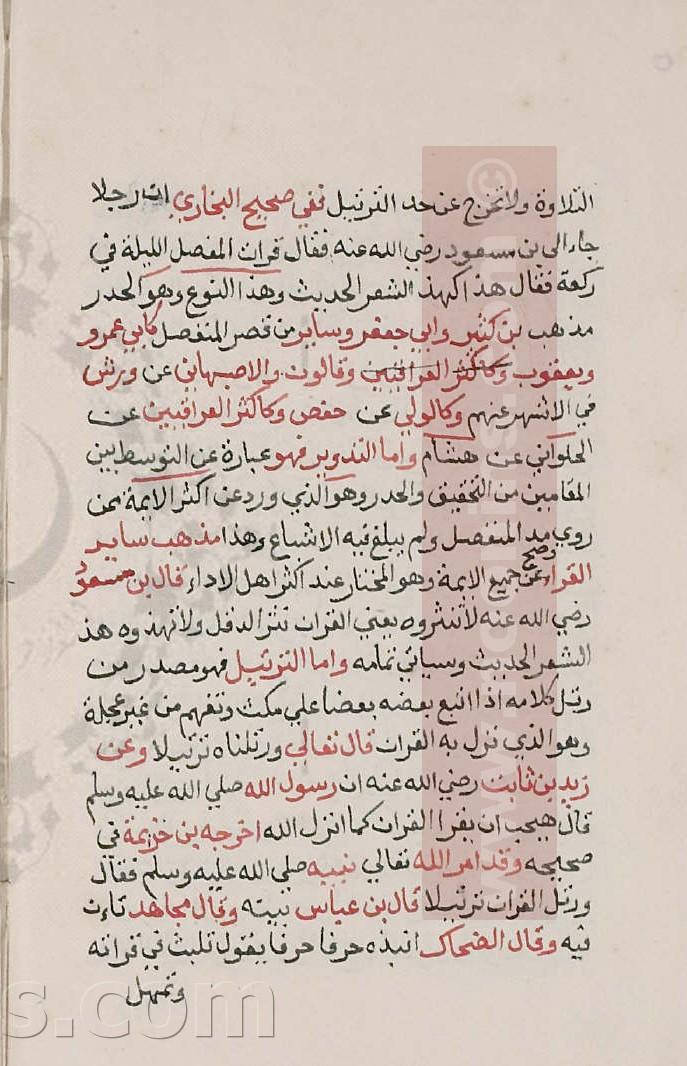 التلاوة ولا تخرج عن حد الترتيل ففي صحيح البخاري ان رجلا
جاء الى بن مسعود رضي الله عنه فقال قرات المفصل الليلة في
ركعة فقال هذا كهذ الشعر الحديث وهذا النوع وهو الحدر
مذهب بن كثير وابي جعفر وساير من قصر المنفصل كابي عمرو
ويعقوب وكاكثر العراقيين وقالون والاصبهاني عن ورش
في الاشهر عنهم وكالولي عن حفص وكاكثر العراقيين عن
الحلواني عن هشام واما التدوير فهو عبارة عن التوسط بين
المقامين من التحقيق والحدر وهو الذي ورد عن اكثر الايمة ممن
روي مد المنفصل ولم يبلغ فيه الاشباع وهذا مذهب ساير
القراء وصح عن جميع الايمة وهو المختار عند اكثر اهل الاداء قال بن مسعود
رضي الله عنه لا تنثروه يعني القران نثر الدقل ولا تهذوه هذ
الشعر الحديث وسياتي تمامه واما الترتيل فهو مصدر من
رتل كلامه اذا اتبع بعضه بعضا علي مكث وتفهم من غير عجلة
وهو الذي نزل به القران قال تعالي ورتلناه ترتيلا وعن
زيد بن ثابت رضي الله عنه ان رسول الله صلي الله عليه وسلم
قال يحب ان يقرا القران كما انزل الله اخرجه بن خزيمة في
صحيحه وقد امر الله تعالي نبيه صلي الله عليه وسلم فقال
ورتل القران ترتيلا قال بن عباس نبيته وقال مجاهد تاءن
فيه وقال الضحاك انبذه حرفا حرفا يقول تلبث في قراته
وتمهل
www.
©
s.com